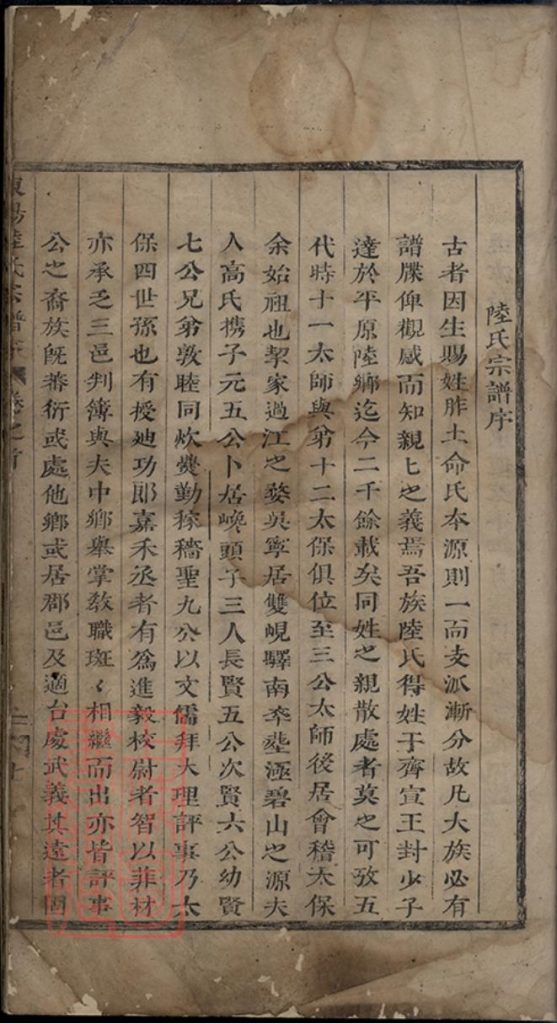 陸氏宗譜序
古者因生賜姓胙土命氏本源則一而支派漸分故凡大族必有
譜牒俾觀感而知親匕之義焉吾族陸氏得姓于齊宣王封少子
達於平原陸鄉迄今二千餘載矣同姓之親散處者莫之可攷五
代時十一太師與弟十二太保俱位至三公太師後居會稽太保
余始祖也挈家過江之婺吳寧居雙峴驛南卒塟極碧山之源夫
人高氏携子元五公卜居嵊頭子三人長賢五公次賢六公幼賢
七公兄弟敦睦同炊爨勤稼穡聖九公以文儒拜大理評事乃太
保四世孫也有授迪功郎嘉禾丞者有爲進毅校尉者智以菲材
亦承乏三邑判簿與夫中鄉舉掌教職斑〻相繼而出亦皆評事
公之裔族既蕃衍或處他鄉或居郡邑及適台處武義其遠者固
東陽陸氏宗譜序 卷之首